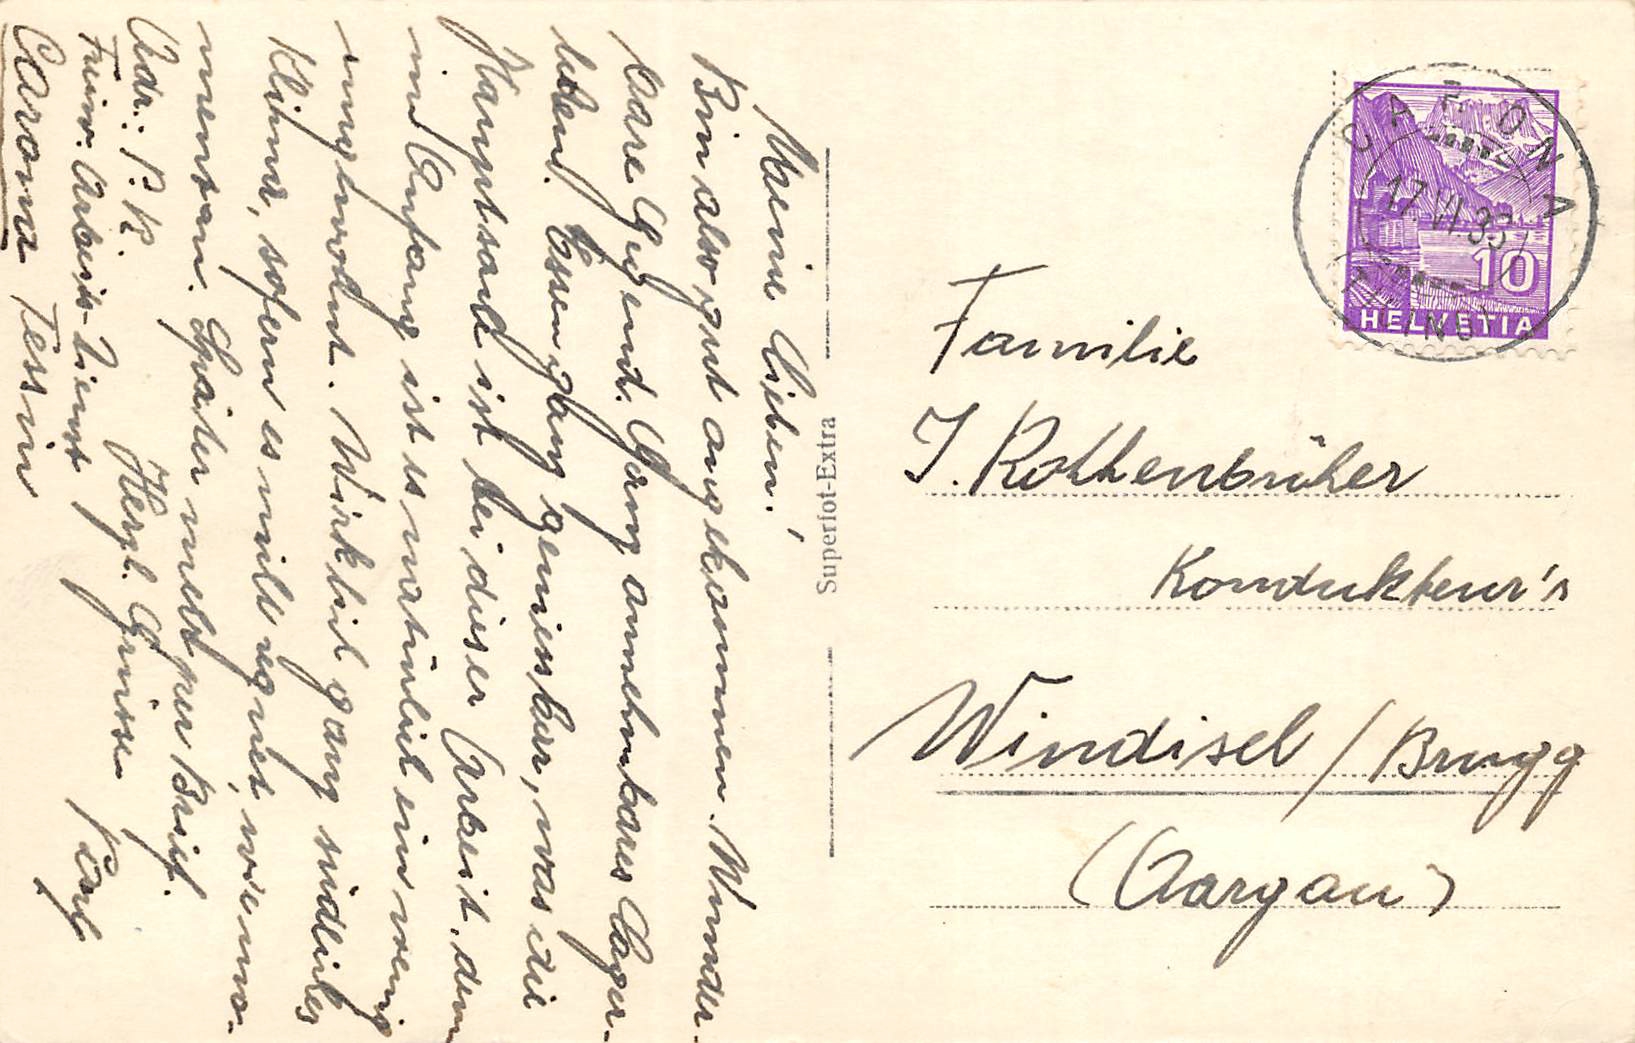 Meine Lieben!
Bin also gut angekommen. Wunder-
bare Gegend. Ganz annehmbares Lager-
leben. Essen ganz geniessbar, was die
Hauptsache ist bei dieser Arbeit, denn
im Anfang ist es natürlich ein wenig
ungewohnt. Wirklich ganz südliches
Klima, sofern es nicht regnet, wie mo-
mentan. Später mehr per Brief.
Herzl. Grüsse Karl
Adr.: P. K.
Freiw. Arbeits-Dienst
Carona Tessin
Superfot-Extra
CARONA
17.VI.33
(TICINO)
10
HELVETIA
Familie
J. Rothenbühler
Kondukteur's
Windisch / Brugg
(Aargau)